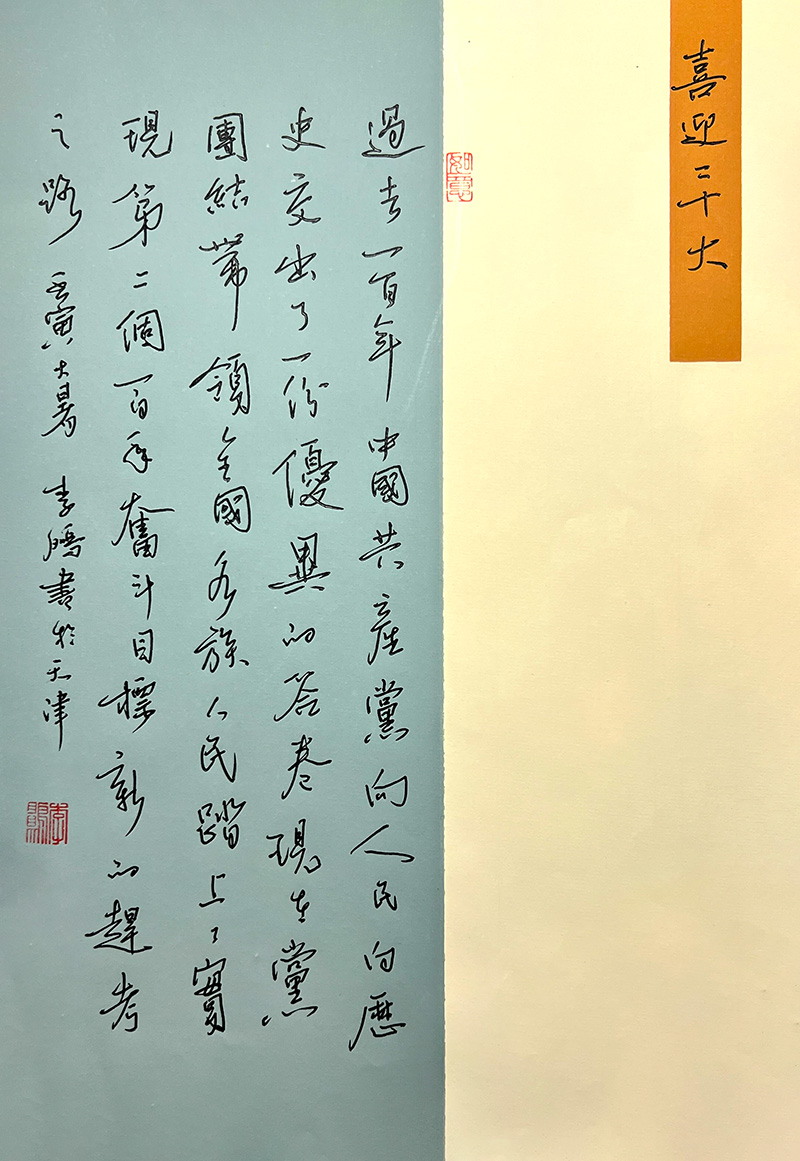 喜迎二十大
如意
過去一百年中國共產黨向人民向歷
史交出了一份優異的答卷現在黨
團結帶領全國各族人民踏上了實
現第二個一百年奮斗目標新的趕考
之路 壬寅大暑 李鵬書於天津